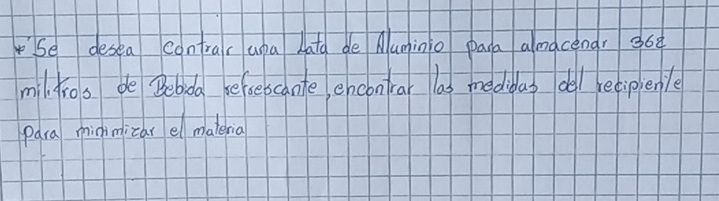 * Se desea contrair una lata de Aluminio para almacenar 368
militros de Bebida refrescante, encontrar las medidas del recipiente
para minimizar el materia